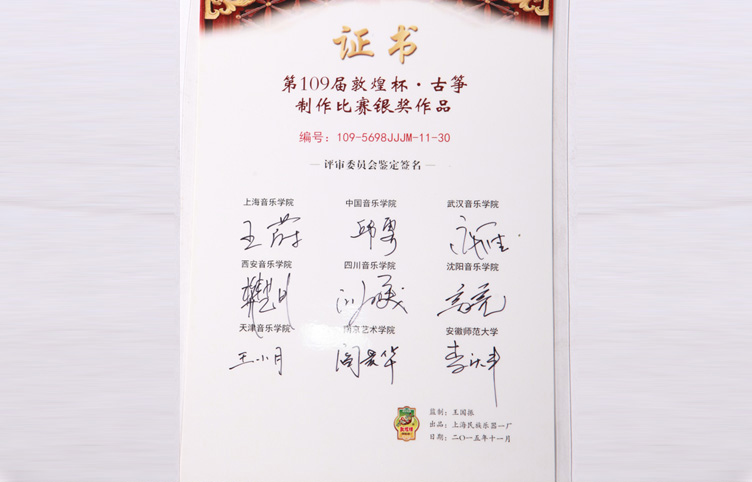 证书
第109届敦煌杯·古筝
制作比赛银奖作品
编号：109-5698JJJM-11-30
评审委员会鉴定签名
上海音乐学院 中国音乐学院 武汉音乐学院
王蔚
西安音乐学院 四川音乐学院 沈阳音乐学院
天津音乐学院 南京艺术学院 安徽师范大学
王小月 阎爱华 李庆丰
监制：王国振
出品：上海民族乐器一厂
日期：二〇一五年十一月
敦煌牌